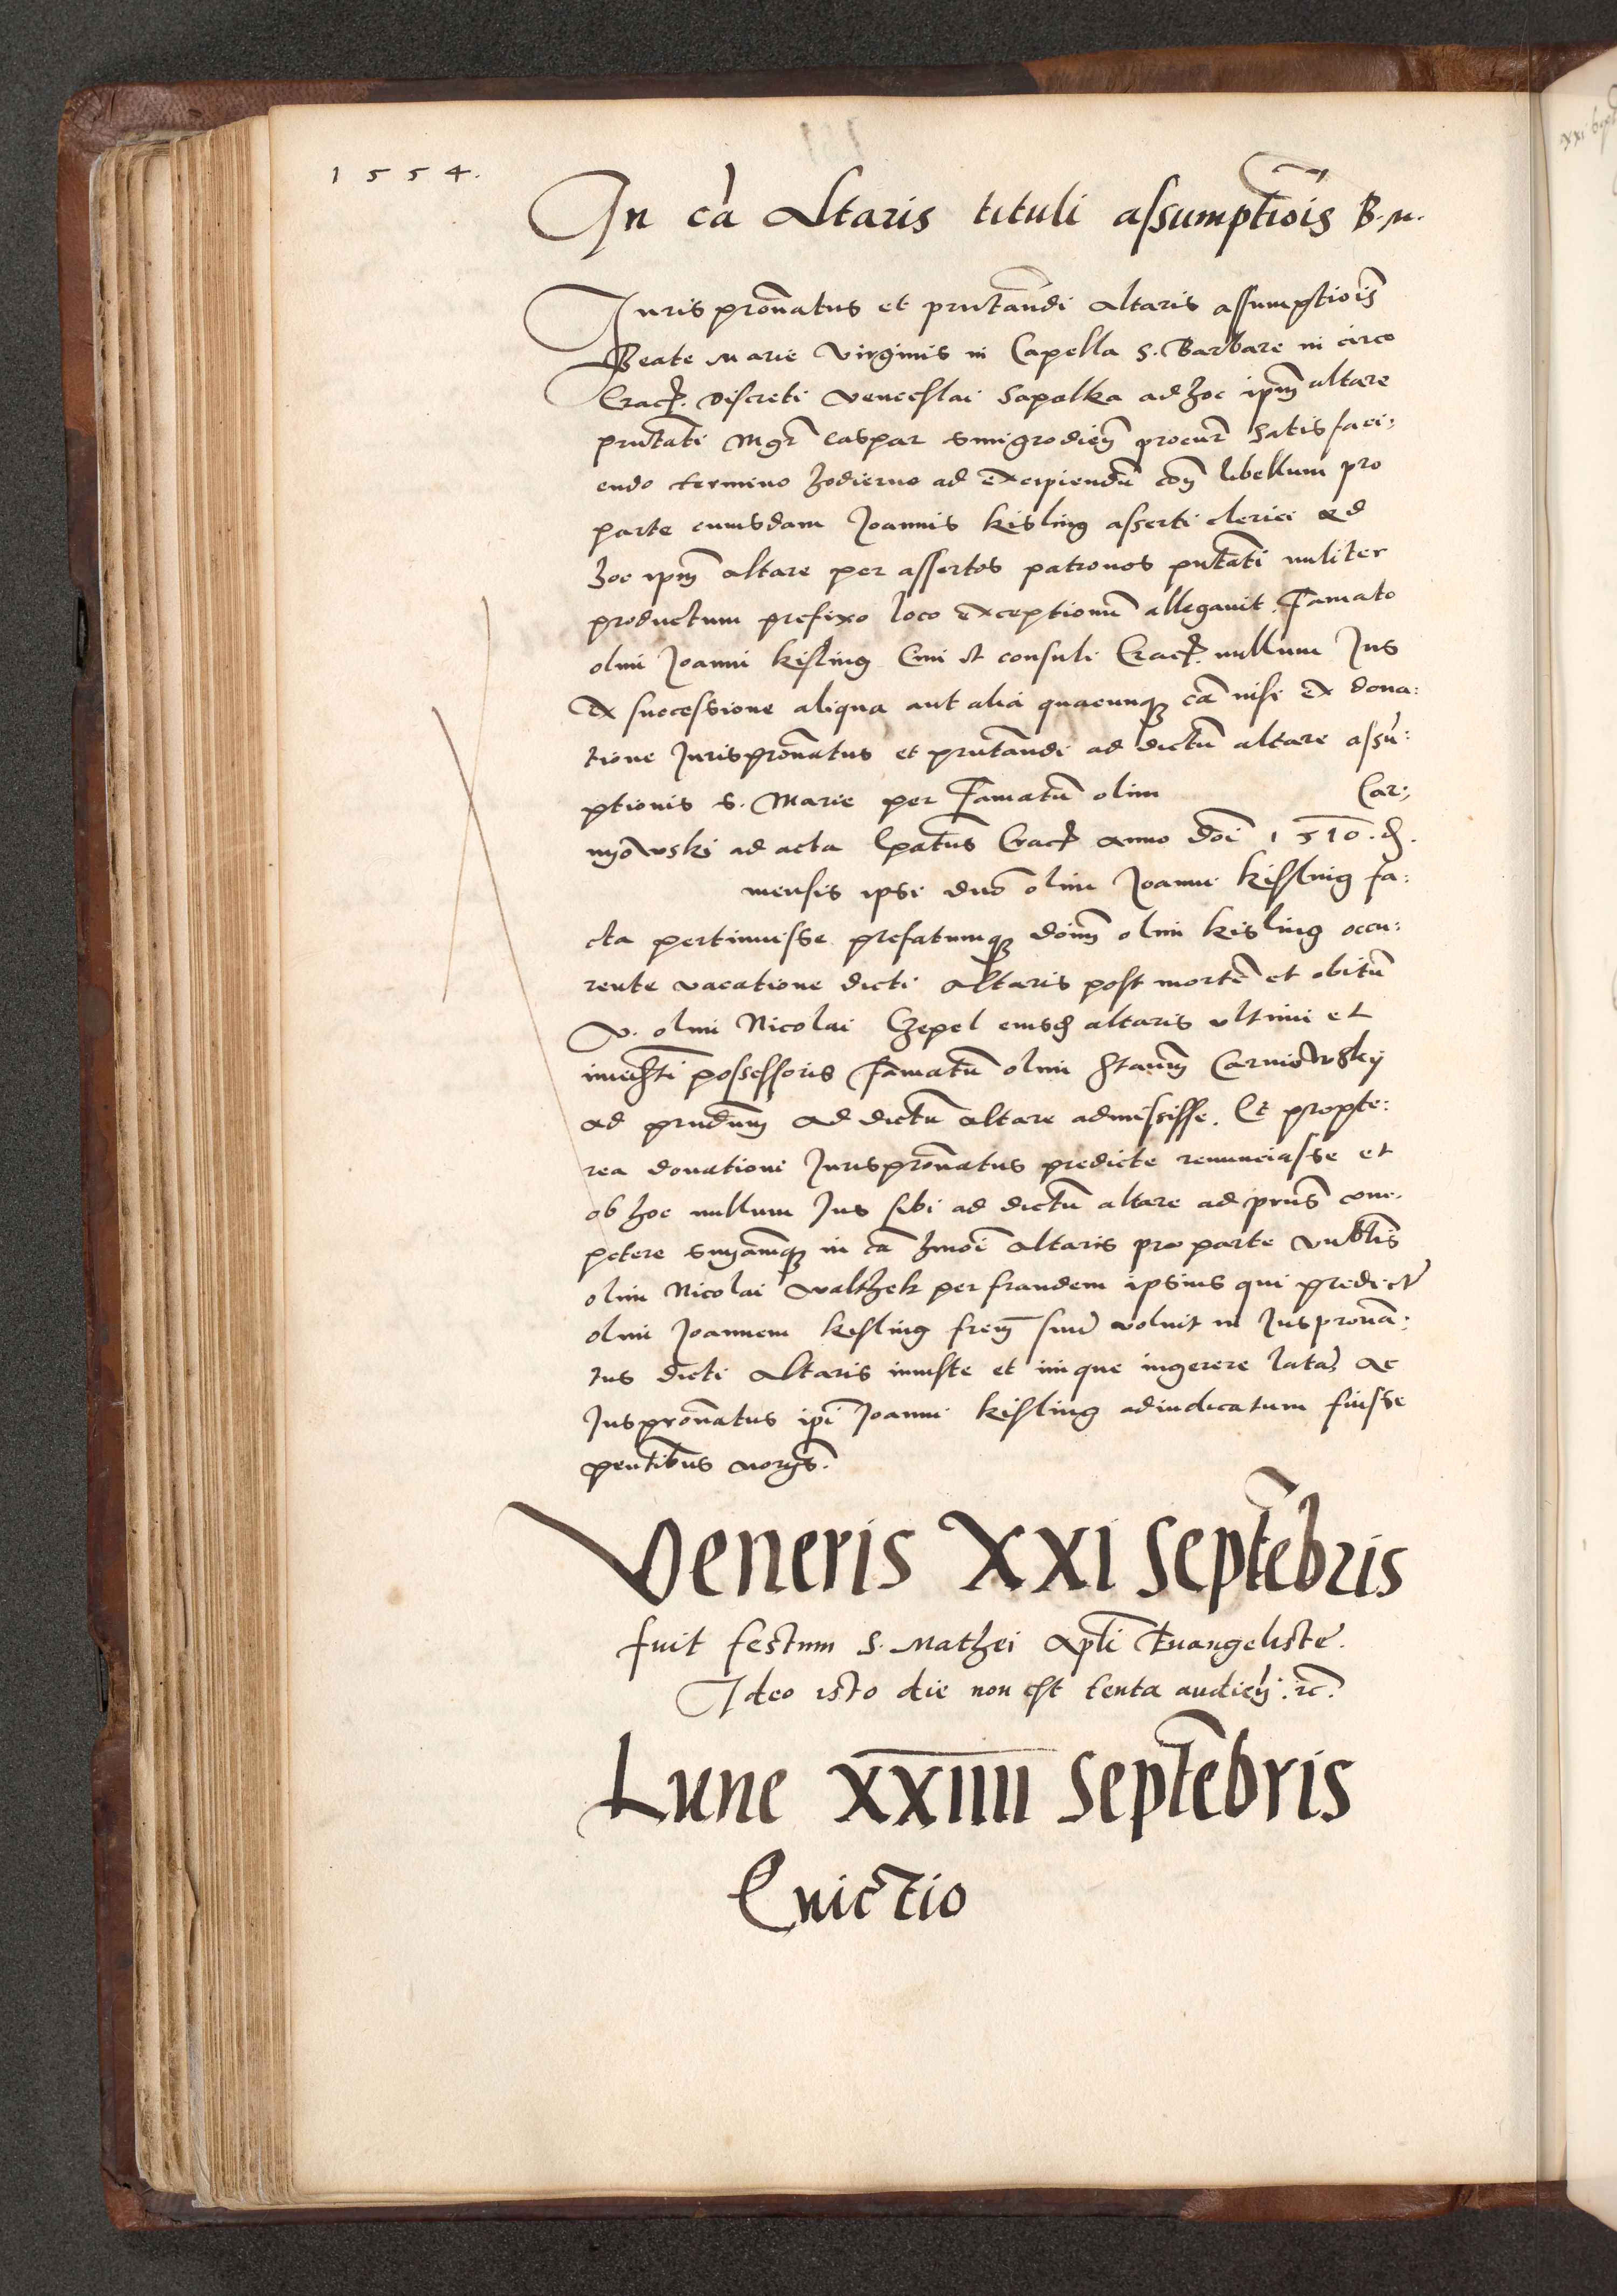 1554.
In cā Altaris tituli assumptiōis B. M.
Juris prōnatus et pr̄ntandi altaris assumptiois
Beate Marie Virginis in Capella S. Barbare in circo
Crac. Discreti Venceslai Sapalka ad hoc ipm̄ altare
pr̄ntati Mgr̄ Caspar Smigrodien̄ procur̄ satisfaci:
endo termino hodierno ad excipiendū con̄ libellum pro
parte cuiusdam Joannis Kisling asserti clerici ad
hoc ipm̄ altare per assertos patronos pn̄tati nuliter
productum prefixo loco exceptionū allegavit. Famato
olim Joanni Kisling Civi et consuli Crac. nullum Jus
ex successione aliqua aut alia quacunq cā nisi ex dona:
tione Jurisprōnatus et pr̄ntandi ad dictū altare assū:
ptionis S. Marie per Famatū olim Car:
niowski ad acta Epātus Crac anno doī 1510. d.
mensis ipsi dno olim Joanni Kisling fa:
cta pertinuisse prefatumq dom̄ olim Kisling occu:
rente vacatione dicti altaris post mortē et obitū
V. olim Nicolai Czepel eiusd altaris ultimi et
possessoris Famatū olim Carniowskij
ad ad dictū altare admisisse. Et propte:
rea donationi Jurisprōnatus predicte renunciasse et
ob hoc nullum Jus sibi ad dictū altare ad com:
petere sn̄iamq in cā hmōi altaris pro parte
olim Nicolai per fraudem ipsius qui predict
olim Joannem Kisling frem̄ suū voluit in Jusprōna:
tus dicti altaris iniuste et inique ingerere lata ac
Jusprōnatus ipī Joanni Kisling adiudicatum fuisse

Veneris XXI Septēbris
fuit festum S. Mathei Apli Evangeliste.
Ideo isto die non est tenta audien̄. rc.
Lune XXIIII Septēbris
Evictio